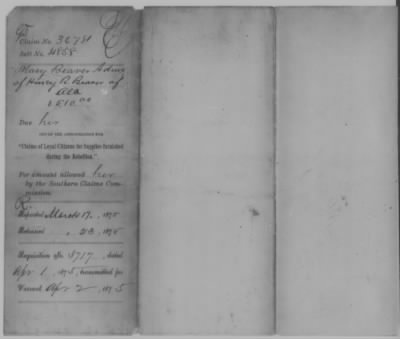 Claim No. 36781
Sett No. 4858
Mary Beaver Admx
of Henry R. Beaver of
Ala
$ 510.00
Due her
OUT OF THE APPROPRIATION FOR
"Claims of Loyal Citizens for Supplies furnished
during the Rebellion."
For amount allowed her
by the Southern Claims Com-
mission.
Reported March 17, 1875
Returned " 23, 1875
Requisition No. 8717, dated
Apr 1, 1875, transmitted for
Warrant Apr 2, 1875